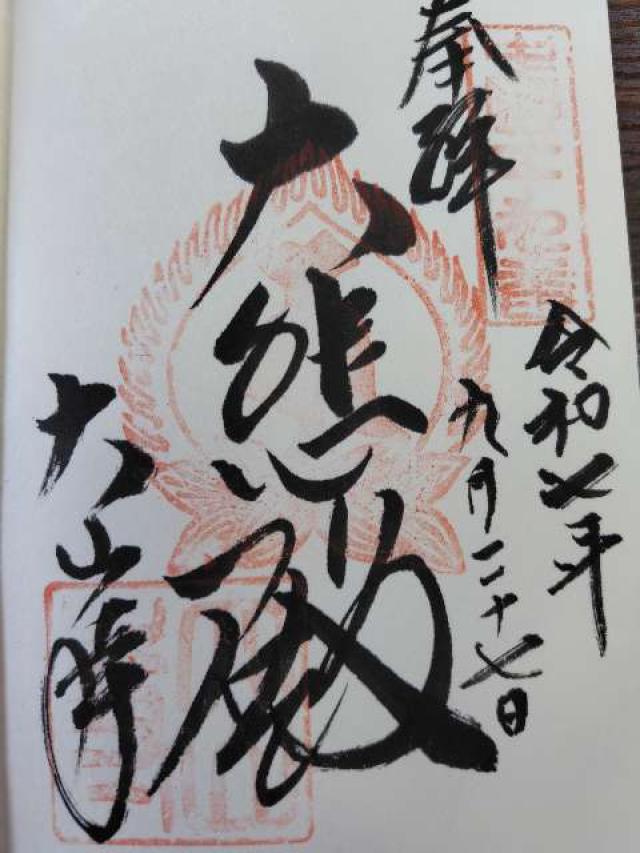 奉拝
令和七年
九月二十七日
大悲殿
大山寺